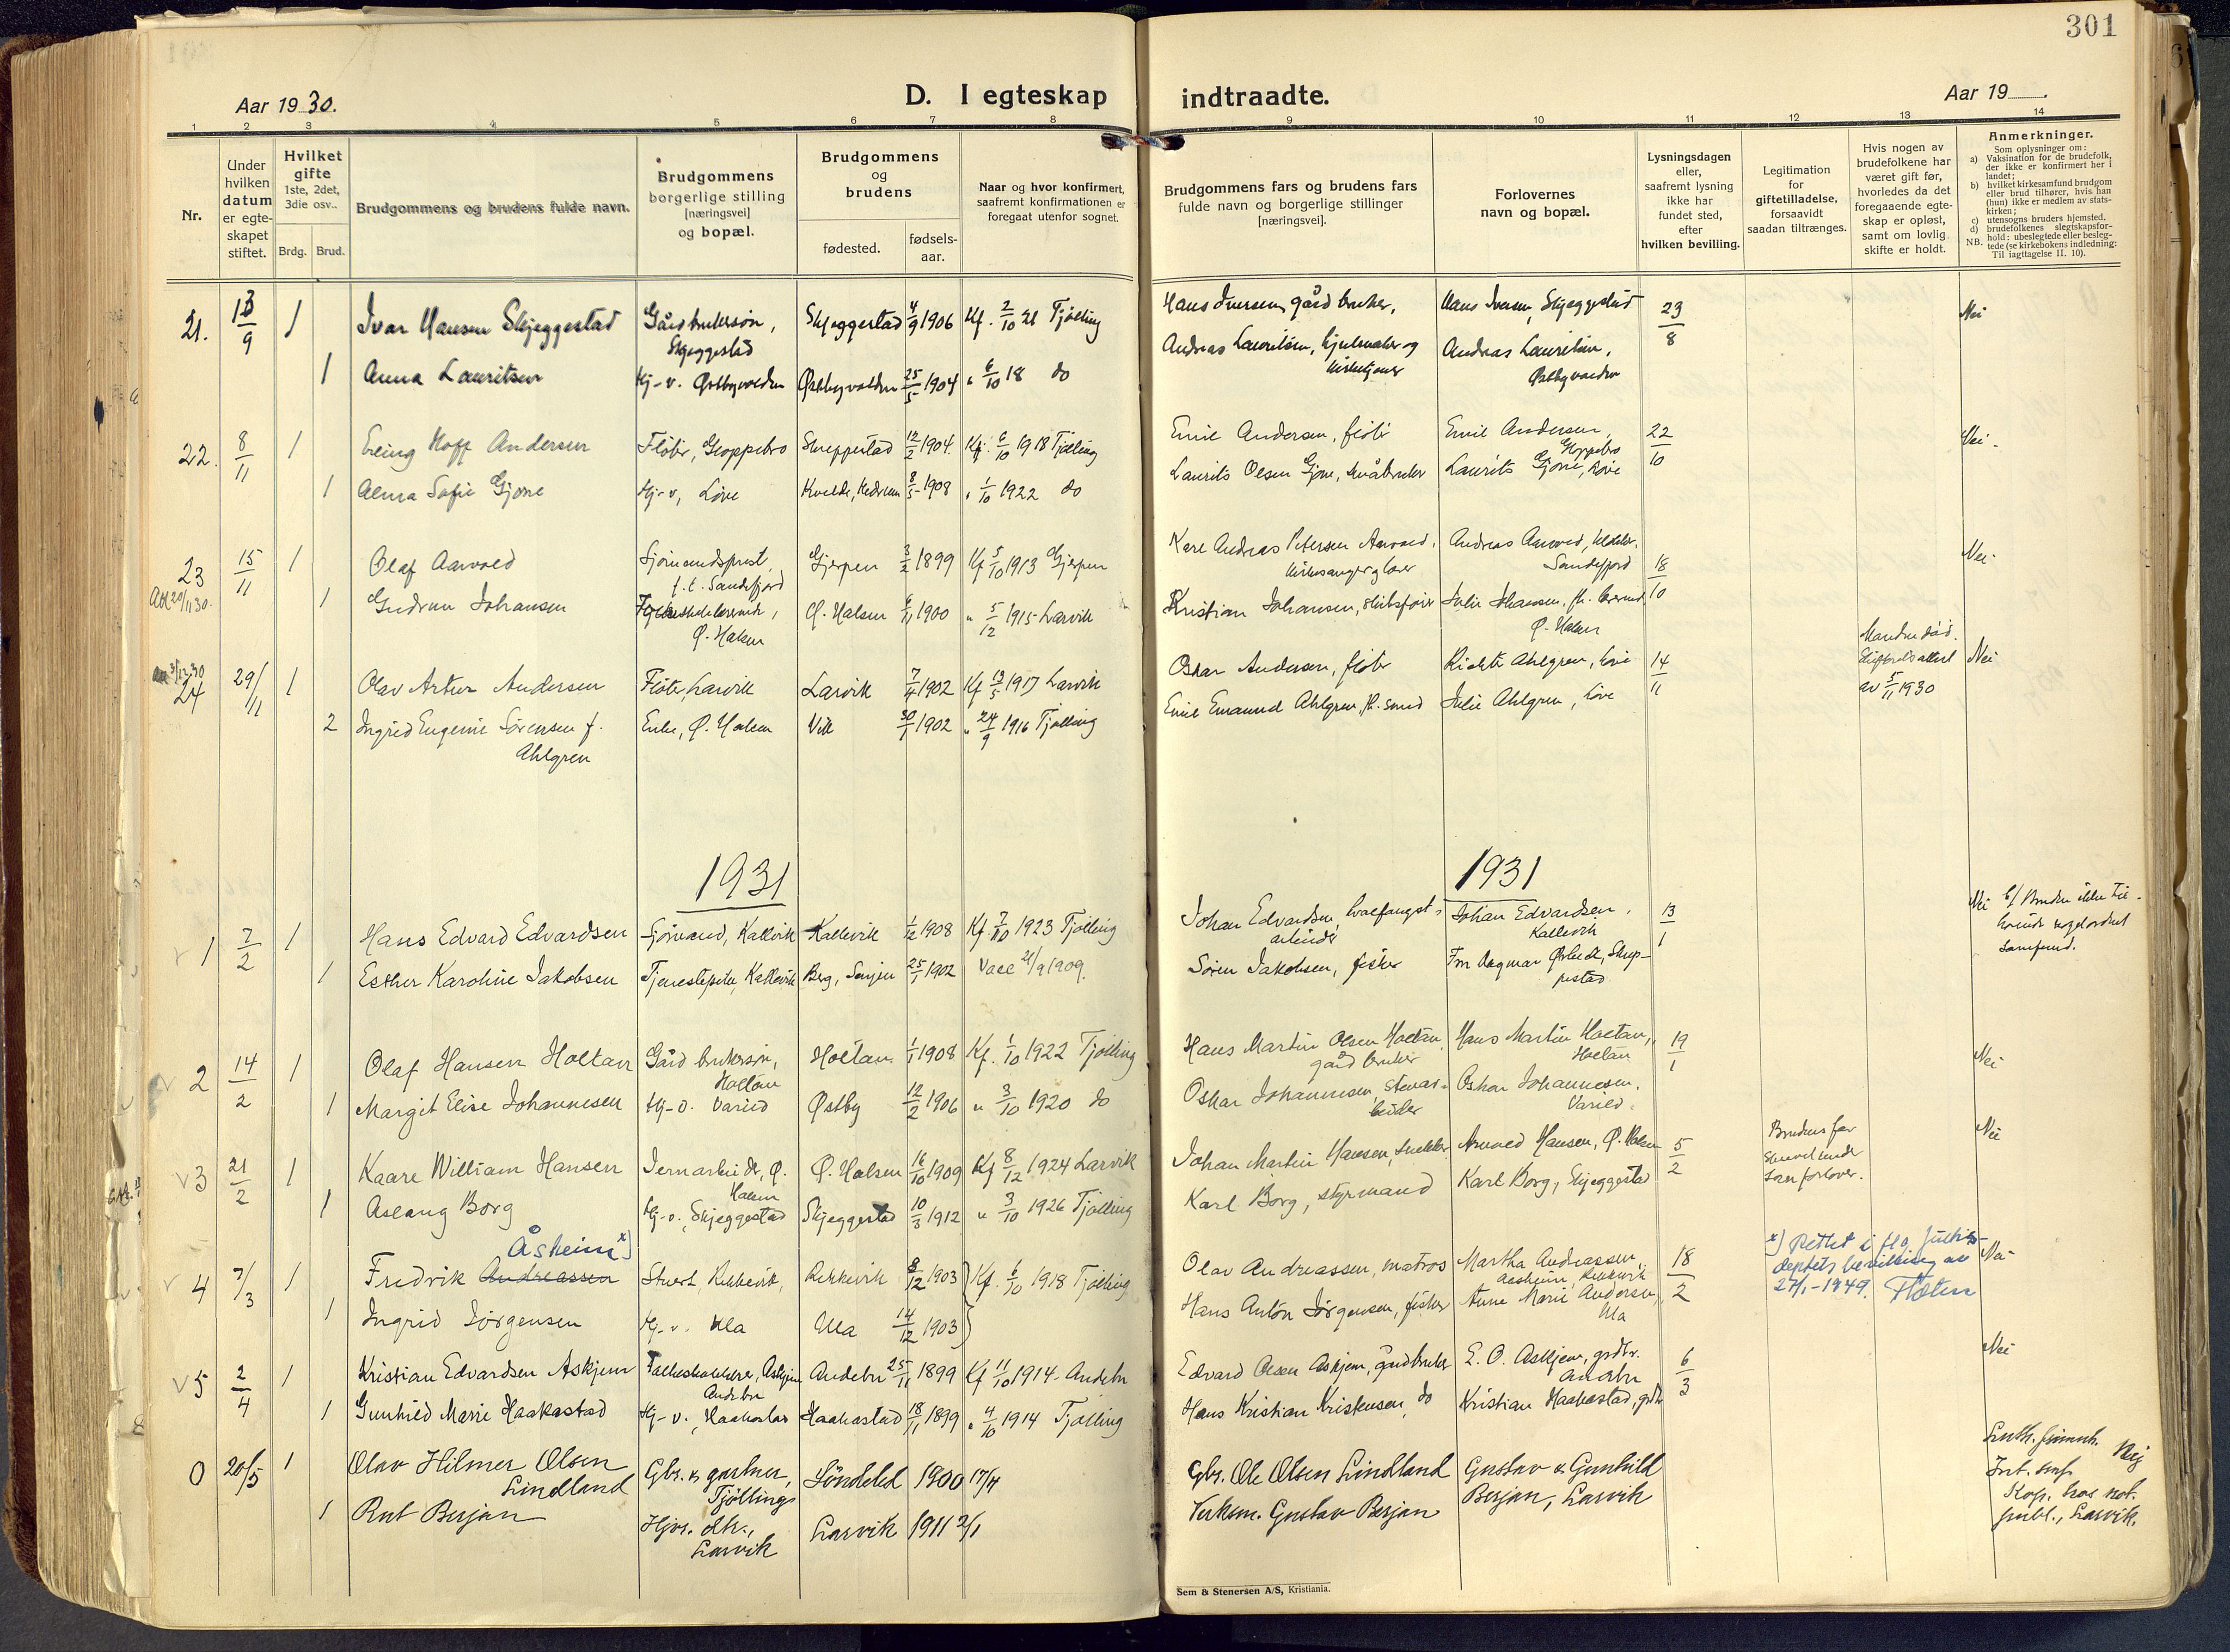 301
Aar 19 30.
D. I egteskap
indtraadte.
Aar 19
1 2 3 4 5 6 7 8 9 10 11 12 13 14
Nr.
Under hvilken datum er egte-skapet stiftet.
Hvilket gifte
1ste, 2det, 3die osv..
Brdg. Brud.
Brudgommens og brudens fulde navn.
Brudgommens borgerlige stilling [næringsvei] og bopæl.
Brudgommens og brudens
fødested.
fødsels-aar.
Naar og hvor konfirmert, saafremt konfirmationen er foregaat utenfor sognet.
Brudgommens fars og brudens fars fulde navn og borgerlige stillinger [næringsvei].
Forlovernes navn og bopæl.
Lysningsdagen eller, saafremt lysning ikke har fundet sted, efter hvilken bevilling.
Legitimation for giftetilladelse, forsaavidt saadan tiltrænges.
Hvis nogen av brudefolkene har været gift før, hvorledes da det foregaaende egte-skap er opløst, samt om lovlig skifte er holdt.
Anmerkninger.
Som oplysninger om:
a) Vaksination for de brudefolk, der ikke er konfirmert her i landet;
b) hvilket kirkesamfund brudgom eller brud tilhører, hvis han (hun) ikke er medlem av stats-kirken;
c) utensogns bruders hjemsted.
d) brudefolkenes slegtskapsfor-hold: ubeslegtede eller besleg-
NB. tede (se kirkebokens indledning: Til iagttagelse II. 10).
21. 13/9 1 Ivar Hansen Skjeggestad Gårdbrukersøn, Skjeggestad Skjeggestad 4/9 1906 Kf. 2/10 21 Tjølling Hans Iversen, gårdbruker, Hans Iversen, Skjeggestad 23/8 Nei
1 Anna Lauritsen Hj-v. Østbyvolden Østbyvolden 25/5 1904 " 6/10 18 do Andreas Lauritsen, hjulmaker og kirketjener Andreas Lauritsen, Østbyvolden
22. 8/11 1 Erling Hoff Andersen Fløter, Gloppebro Skreppestad 12/2 1904. Kf. 6/10 1918 Tjølling Emil Andersen, fløter Emil Andersen, Gloppebro 22/10 Nei.
1 Alma Sofie Gjone Hj-v, Løve Kvelde, Hedrum 8/5 1908 " 1/10 1922 do Laurits Olsen Gjone, småbruker Laurits Gjone, Løve
23 15/11 1 Olaf Aarvold Sjømandsprest, f.t. Sandefjord Gjerpen 3/2 1899 Kf 5/10 1913 Gjerpen Andreas Petersen Aarvold, kirkesanger og lærer Andreas Aarvold, Sandefjord 18/10 Nei.
1 Gudrun Johansen Folkeskolelærerinde, Ø. Halsen Ø. Halsen 6/11 1900 " 5/12 1915 Larvik Kristian Johansen, skibsfører Julie Johansen, Ø. Halsen
24 29/11 1 Olav Artur Andersen Fløter, Larvik Larvik 7/4 1902 Kf 13/5 1917 Larvik Oskar Andersen, fløter Ahlgren, Løve 14/11 Manden død. Skifteretsattest av 5/11 1930 Nei
2 Ingrid Eugenie Sørensen f. Ahlgren Enke, Ø. Halsen Vik 30/1 1902 " 24/9 1916 Tjølling Emil Emanuel Ahlgren, smed Julie Ahlgren, Løve
1931
1931
1 7/2 1 Hans Edvard Edvardsen Sjømand, Kallevik Kallevik 1/12 1908 Kf 7/10 1923 Tjølling Johan Edvardsen, hvalfangst-arbeider Johan Edvardsen, Kallevik 13/1 Nei b/ Bruden ikke til-hørende nogetordnet samfund.
1 Esther Karoline Jakobsen Tjenestepike, Kallevik Berg, Senjen 25/1 1902 Vacc 21/9 1909. Søren Jakobsen, fisker Fru Dagmar
2 14/2 1 Olaf Hansen Holtan Gårdbrukersøn, Holtan Holtan 1/1 1908 Kf. 1/10 1922 Tjølling Hans Martin Olsen Holtan, gårdbruker Hans Martin Holtan, Holtan 19/1 Nei
1 Margit Elise Johannesen Hj-v. Varild Østby 12/2 1906 " 3/10 1920 do Oskar Johannesen, stenar-beider Oskar Johannesen, Varild.
3 21/2 1 Kaare William Hansen Jernarbeider, Ø. Halsen Ø. Halsen 16/10 1909 Kf 8/12 1924 Larvik Johan Martin Hansen, snekker Arvold Hansen, Ø. Halsen 5/2 Brudens far skrevet under som forlover. Nei
1 Aslaug Borg Hj-v., Skjeggestad Skjeggestad 10/3 1912 " 3/10 1926 Tjølling Karl Borg, styrmand Karl Borg, Skjeggestad
Åsheim x)
4 7/3 1 Fredrik Andreassen Stuert, Rekkevik, Rekkevik 8/12 1903 Kf. 6/10 1918 Tjølling Olav Andreassen, matros Martha Andreassen, Aasheim, Rekkevik 18/2 x) Rettet i flg. Justis-deptets bevilling av 27/1-1949. Nei
1 Ingrid Jørgensen Hj-v. Ula Ula 14/12 1903 Hans Anton Jørgensen, fisker Anne Marie Andersen, Ula
5 2/4 1 Kristian Edvardsen Askjem Askjem Andebu Andebu 25/11 1899 Kf 11/10 1914 Andebu Edvard Olsen Askjem, gårdbruker E. O. Askjem, grdbr. Andebu 6/3 Nei
1 Gunhild Marie Haakastad Hj-v., Haakastad Haakastad 18/11 1899 " 4/10 1914 Tjølling Hans Kristian Kristensen, do Kristian Haakastad, grdbr
0 20/5 1 Olav Hilmer Olsen Lindland Gbr. & gartner, Tjølling Söndeled 1900 17/4 Gbr. Ole Olsen Lindland Gustav & Gunhild Berjan, Larvik Luth. frimenh. Nej
1 Rut Berjan Hjv. dtr., Larvik Larvik 1911 2/1 Verksm. Gustav Berjan Kop. hos not. publ., Larvik.
Sem & Stenersen A/S, Kristiania.